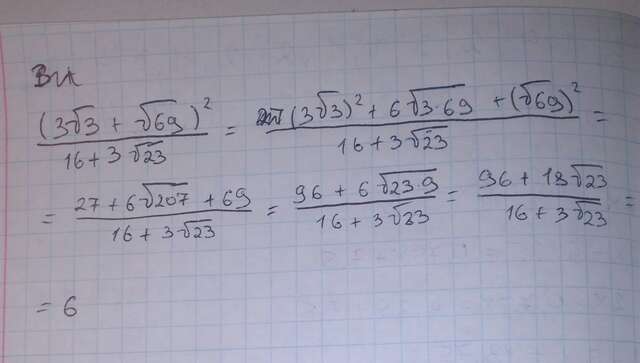 (3√3 + √69)² / (16 + 3√23) = ((3√3)² + 6√(3·69) + (√69)²) / (16 + 3√23) =
= (27 + 6√207 + 69) / (16 + 3√23) = (96 + 6√(23·9)) / (16 + 3√23) = (96 + 18√23) / (16 + 3√23) =
= 6